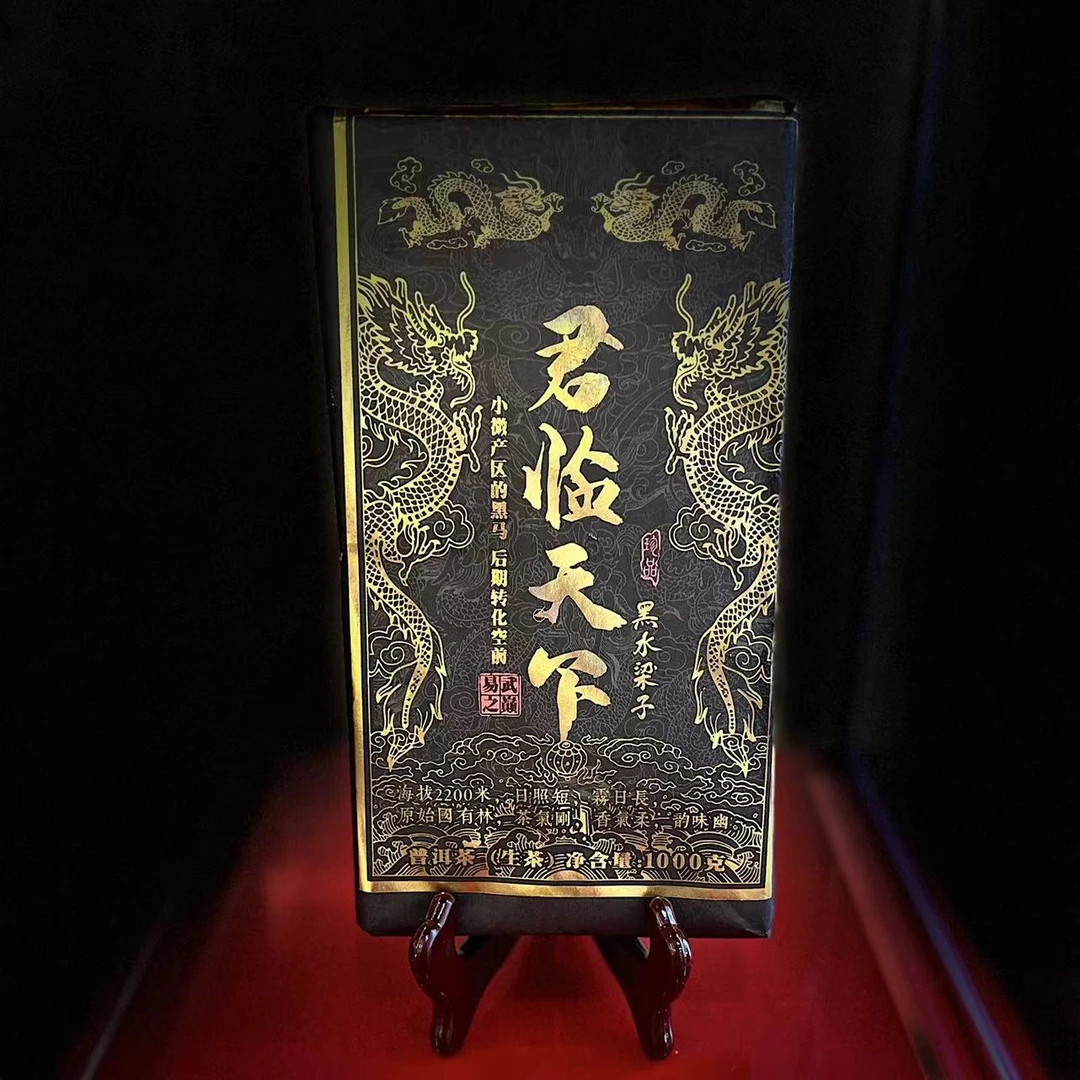 君临天下
小微产区的黑马 后期转化空前
易武之巅
珍品
黑水梁子
海拔2200米，日照短，霧日長，
原始國有林，茶氣剛，香氣柔，韵味幽。
普洱茶（生茶）净含量:1000克